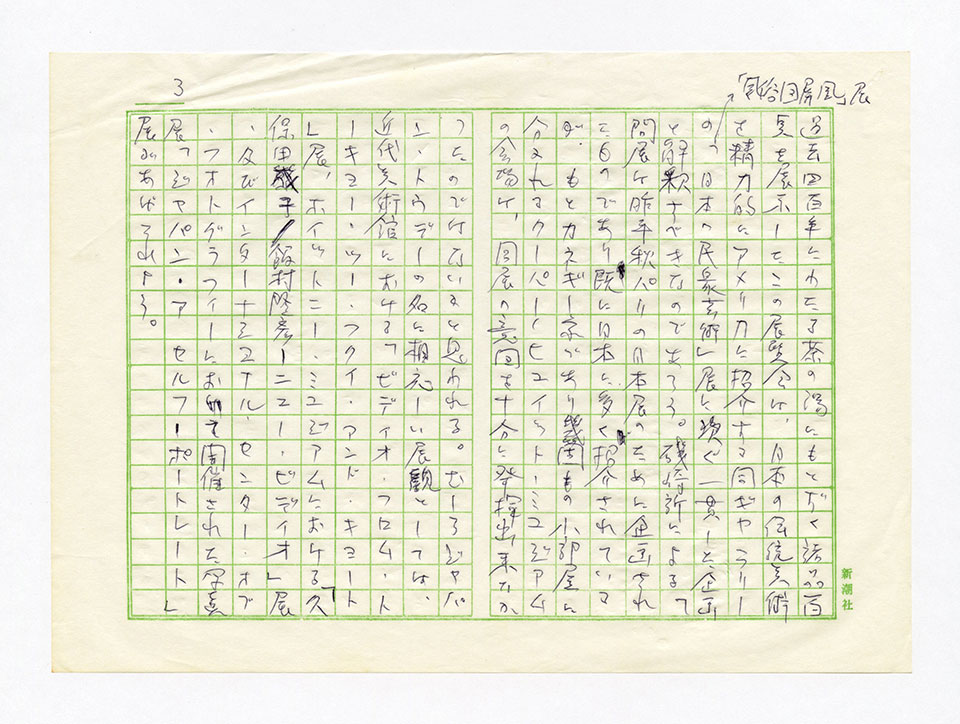 3
「風俗図屏風」展
過去四百年にわたる茶の湯にもとずく諸品百
点を展示したこの展覧会は、日本の伝統美術
を精力的にアメリカに紹介する同ギャラリー
の「日本の民衆芸術」展に次ぐ一貫した企画
と解釈すべきなのであろう。磯崎新による
問展は昨年秋パリの日本展のために企画され
たものであり既に日本に多く招介されている
が、もとカネギー家であり幾園もの小部屋に
分かれてクーパー・ヒュイット・ミュジアム
の会場は、同展の意図を十分に発揮出来なか
ったのではないかと思われる。むしろジャパ
ン・トゥデーの名に相応しい展観としては、
近代美術館における「ビディオ・フロム・ト
ーキョー・ツー・フクイ・アンド・キョート
」展、ホイットニー・ミュジアムにおける久
保田成子/飯村隆彦ーニュー・ビデイオ」展
、及びインターナショナル・センター・オブ
・フォトグラフィーにおいて開催された写真
展「ジャパン・ア セルフーポートレート」
展があげられよう。
新潮社